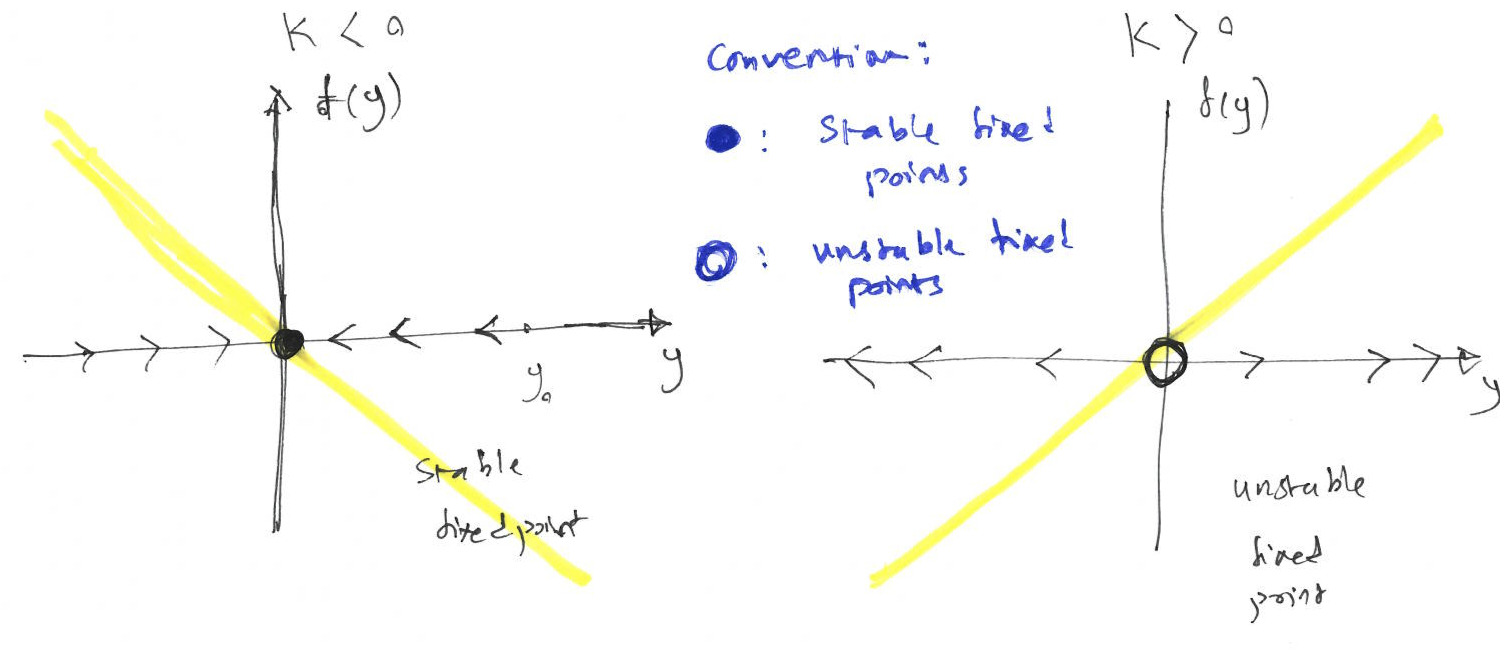 K < 0
f(y)
y
y₀
stable
fixed point
Convention:
: Stable fixed
points
: unstable fixed
points
K > 0
f(y)
y
unstable
fixed
point